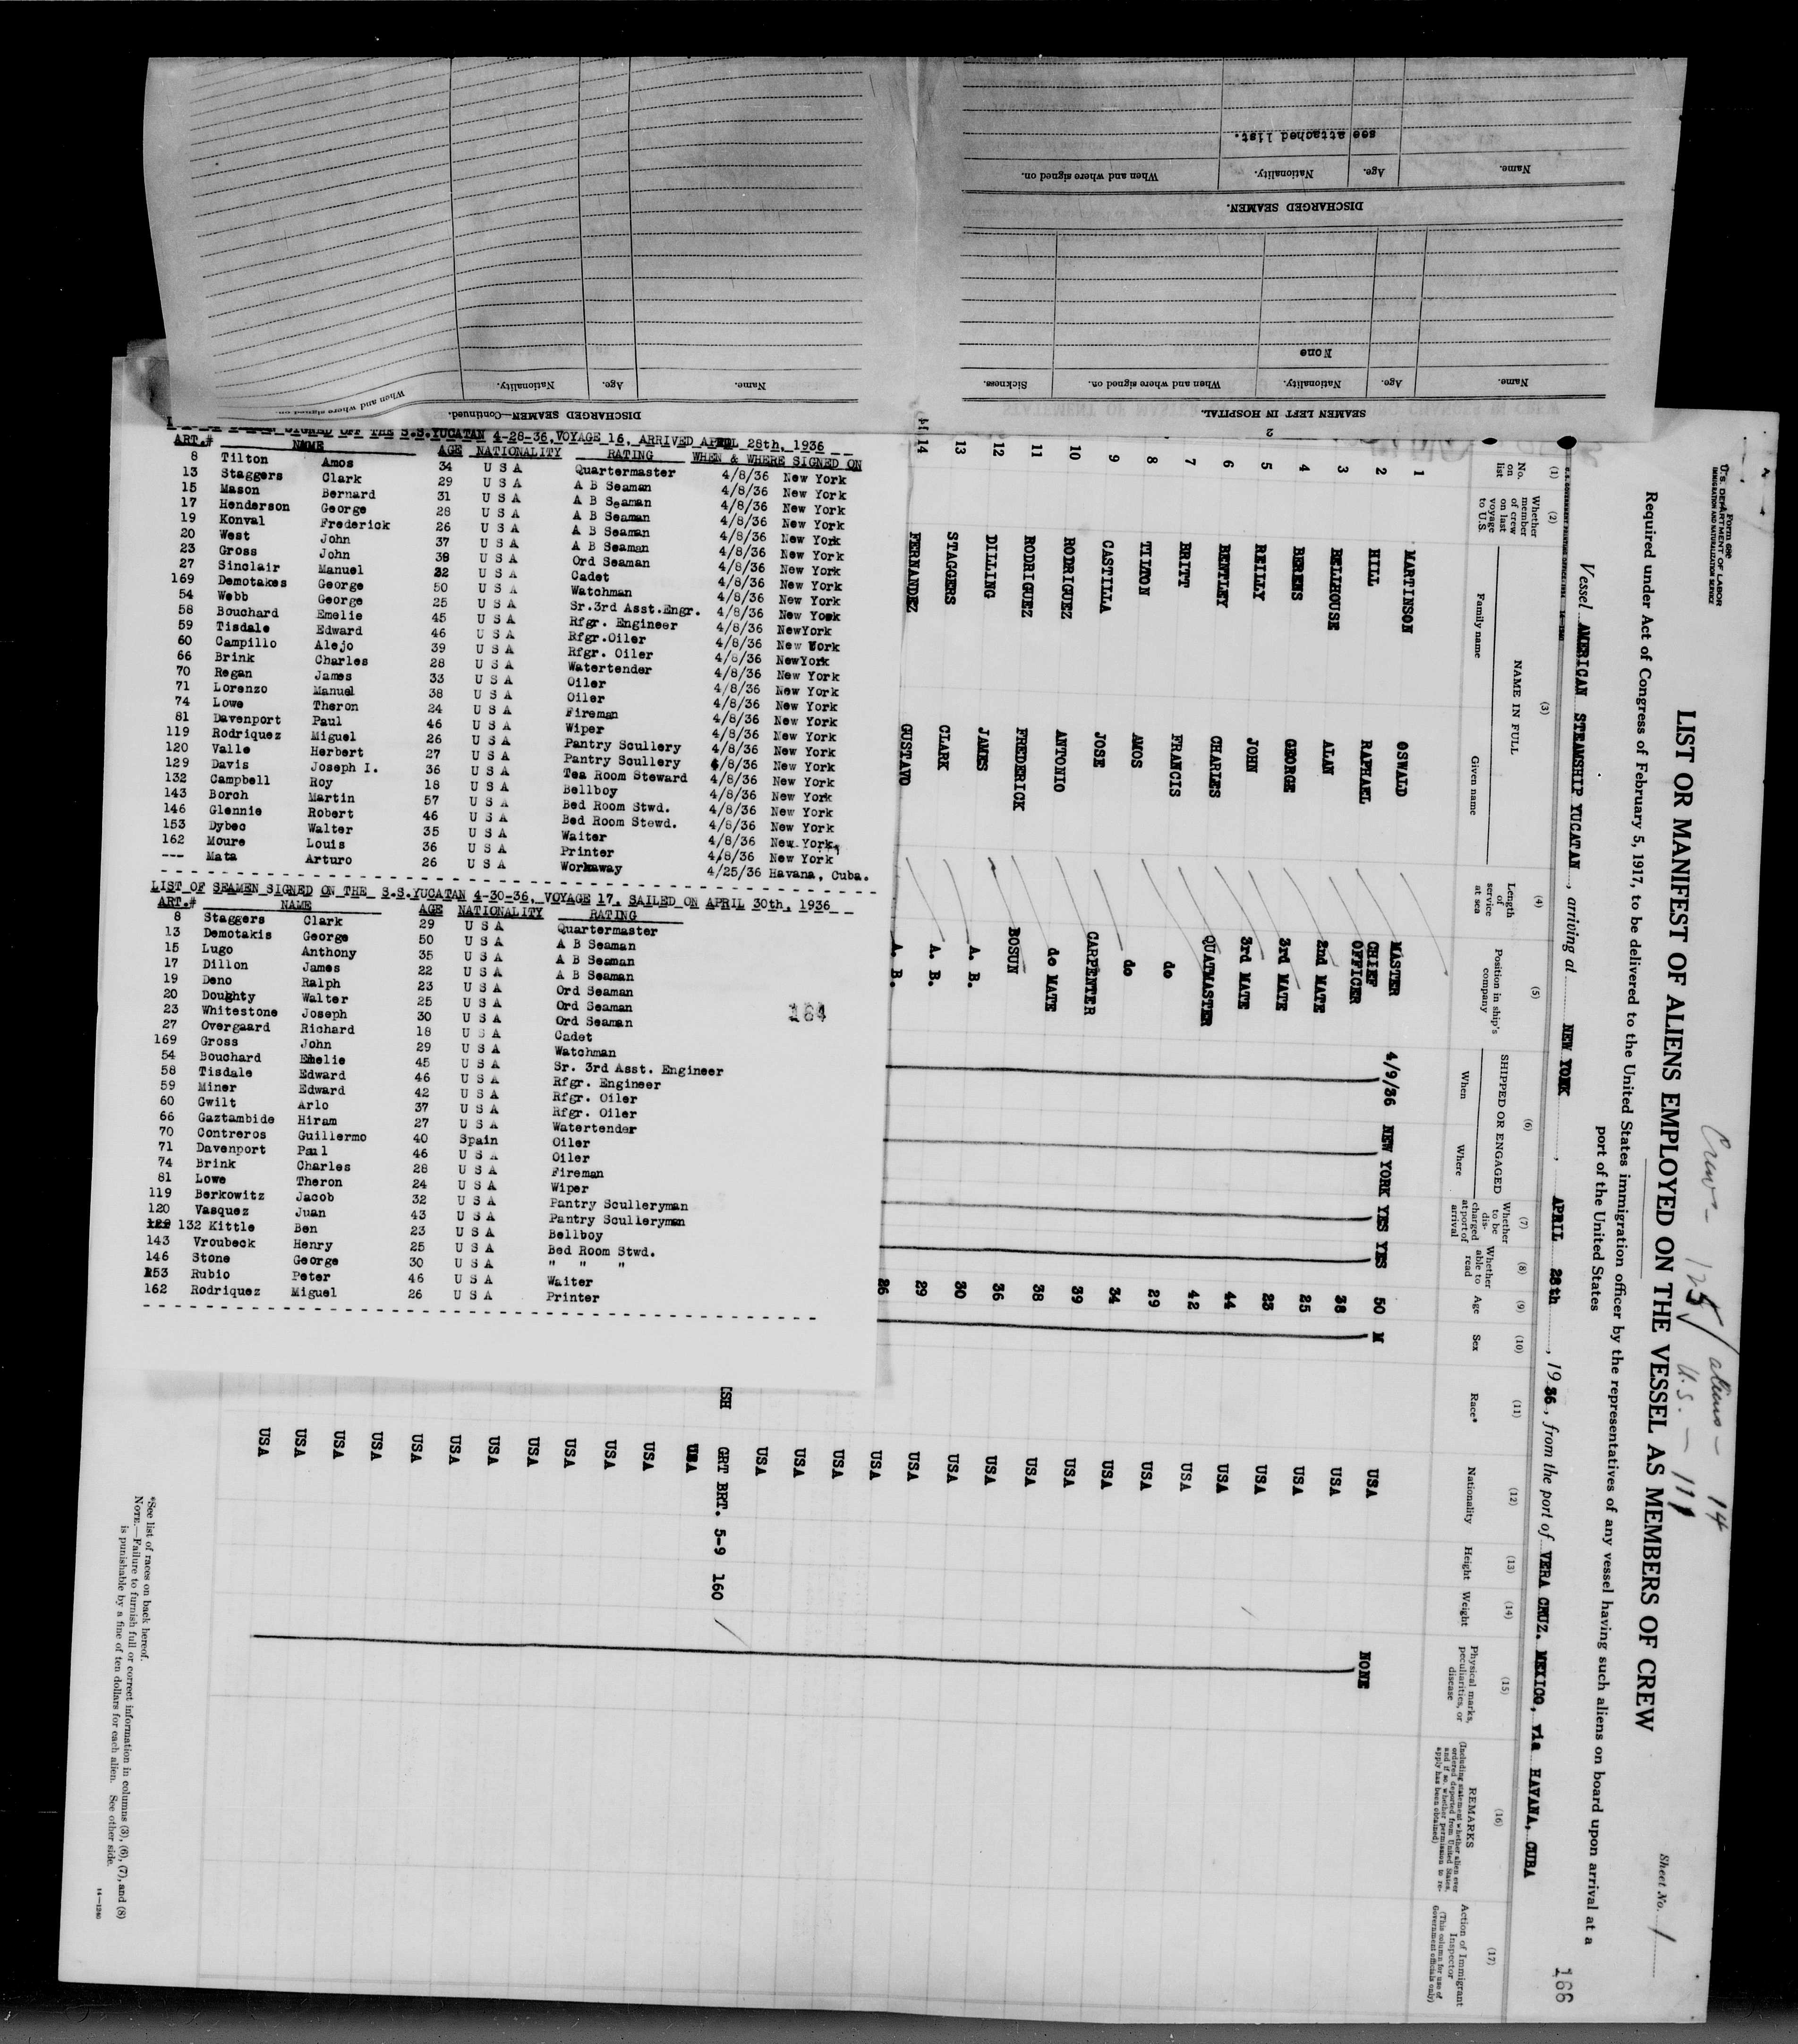 Form 680
U. S. DEPARTMENT OF LABOR
IMMIGRATION AND NATURALIZATION SERVICE
Crew - 125 / aliens - 14
U.S. - 111
Sheet No. 1
LIST OR MANIFEST OF ALIENS EMPLOYED ON THE VESSEL AS MEMBERS OF CREW
Required under Act of Congress of February 5, 1917, to be delivered to the United States immigration officer by the representatives of any vessel having such aliens on board upon arrival at a
port of the United States
166
Vessel AMERICAN STEAMSHIP YUCATAN, arriving at NEW YORK, APRIL 28th, 1936, from the port of VERA CRUZ. MEXICO, via HAVANA, CUBA
(1) (2) (3) (4) (5) (6) (7) (8) (9) (10) (11) (12) (13) (14) (15) (16) (17)
No. on list
Whether member of crew on last voyage to U.S.
NAME IN FULL
Family name Given name
Length of service at sea
Position in ship's company
SHIPPED OR ENGAGED
When Where
Whether to be discharged at port of arrival
Whether able to read
Age
Sex
Race*
Nationality
Height
Weight
Physical marks, peculiarities, or disease
REMARKS
(Including statement whether alien ever ordered deported from United States, and if so, whether permission to reapply has been obtained)
Action of Immigrant Inspector
(This column for use of Government officials only)
1 MARTINSON OSWALD MASTER 4/9/36 NEW YORK YES YES 50 M USA NONE
2 HILL RAPHAEL CHIEF OFFICER 38 USA
3 BELLHOUSE ALAN 2nd MATE 25 USA
4 BERENS GEORGE 3rd MATE 23 USA
5 REILLY JOHN 3rd MATE 44 USA
6 BENTLEY CHARLES QUATMASTER 42 USA
7 BRITT FRANCIS do 29 USA
8 TILTON AMOS do 34 USA
9 CASTILLA JOSE CARPENTER 39 USA
10 RODRIGUEZ ANTONIO do MATE 38 USA
11 RODRIGUEZ FREDERICK BOSUN 36 USA
12 DILLING JAMES A. B. 30 USA
13 STAGGERS CLARK A. B. 29 USA
14 FERNANDEZ GUSTAVO A. B. 26 USA
USA
USA
USA
ISH GRT BRT. 5-9 160
USA
USA
USA
USA
USA
USA
USA
USA
USA
USA
USA
USA
*See list of races on back hereof.
NOTE.—Failure to furnish full or correct information in columns (3), (6), (7), and (8)
is punishable by a fine of ten dollars for each alien. See other side.
14—1240
2
SEAMEN LEFT IN HOSPITAL.
Name. Age. Nationality. When and where signed on. Sickness.
None
DISCHARGED SEAMEN.
Name. Age. Nationality. When and where signed on.
see attached list.
DISCHARGED SEAMEN—Continued.
Name. Age. Nationality. When and where signed on.
SIGNED OFF THE S.S.YUCATAN 4-28-36. VOYAGE 16, ARRIVED APRIL 28th, 1936
ART.# NAME AGE NATIONALITY RATING WHEN & WHERE SIGNED ON
8 Tilton Amos 34 U S A Quartermaster 4/8/36 New York
13 Staggers Clark 29 U S A A B Seaman 4/8/36 New York
15 Mason Bernard 31 U S A A B Seaman 4/8/36 New York
17 Henderson George 28 U S A A B Seaman 4/8/36 New York
19 Konval Frederick 26 U S A A B Seaman 4/8/36 New York
20 West John 37 U S A A B Seaman 4/8/36 New York
23 Gross John 38 U S A Ord Seaman 4/8/36 New York
27 Sinclair Manuel U S A Cadet 4/8/36 New York
169 Demotakes George 50 U S A Watchman 4/8/36 New York
54 Webb George 25 U S A Sr.3rd Asst.Engr. 4/8/36 New York
58 Bouchard Emelie 45 U S A Rfgr. Engineer 4/8/36 NewYork
59 Tisdale Edward 46 U S A Rfgr.Oiler 4/8/36 New York
60 Campillo Alejo 39 U S A Rfgr. Oiler 4/8/36 NewYork
66 Brink Charles 28 U S A Watertender 4/8/36 New York
70 Regan James 33 U S A Oiler 4/8/36 New York
71 Lorenzo Manuel 38 U S A Oiler 4/8/36 New York
74 Lowe Theron 24 U S A Fireman 4/8/36 New York
81 Davenport Paul 46 U S A Wiper 4/8/36 New York
119 Rodriquez Miguel 26 U S A Pantry Scullery 4/8/36 New York
120 Valle Herbert 27 U S A Pantry Scullery 4/8/36 New York
129 Davis Joseph I. 36 U S A Tea Room Steward 4/8/36 New York
132 Campbell Roy 18 U S A Bellboy 4/8/36 New York
143 Borch Martin 57 U S A Bed Room Stwd. 4/8/36 New York
146 Glennie Robert 46 U S A Bed Room Stewd. 4/8/36 New York
153 Dybec Walter 35 U S A Waiter 4/8/36 New York
162 Moure Louis 36 U S A Printer 4/8/36 New York
--- Mata Arturo 26 U S A Workaway 4/25/36 Havana, Cuba.
LIST OF SEAMEN SIGNED ON THE S.S.YUCATAN 4-30-36, VOYAGE 17, SAILED ON APRIL 30th, 1936
ART.# NAME AGE NATIONALITY RATING
8 Staggers Clark 29 U S A Quartermaster
13 Demotakis George 50 U S A A B Seaman
15 Lugo Anthony 35 U S A A B Seaman
17 Dillon James 22 U S A A B Seaman
19 Deno Ralph 23 U S A Ord Seaman
20 Doughty Walter 25 U S A Ord Seaman
23 Whitestone Joseph 30 U S A Ord Seaman
27 Overgaard Richard 18 U S A Cadet
169 Gross John 29 U S A Watchman
54 Bouchard Emelie 45 U S A Sr. 3rd Asst. Engineer
58 Tisdale Edward 46 U S A Rfgr. Engineer
59 Miner Edward 42 U S A Rfgr. Oiler
60 Gwilt Arlo 37 U S A Rfgr. Oiler
66 Gaztambide Hiram 27 U S A Watertender
70 Contreros Guillermo 40 Spain Oiler
71 Davenport Paul 46 U S A Oiler
74 Brink Charles 28 U S A Fireman
81 Lowe Theron 24 U S A Wiper
119 Berkowitz Jacob 32 U S A Pantry Sculleryman
120 Vasquez Juan 43 U S A Pantry Sculleryman
132 Kittle Ben 23 U S A Bellboy
143 Vroubeck Henry 25 U S A Bed Room Stwd.
146 Stone George 30 U S A " " "
153 Rubio Peter 46 U S A Waiter
162 Rodriquez Miguel 26 U S A Printer
164